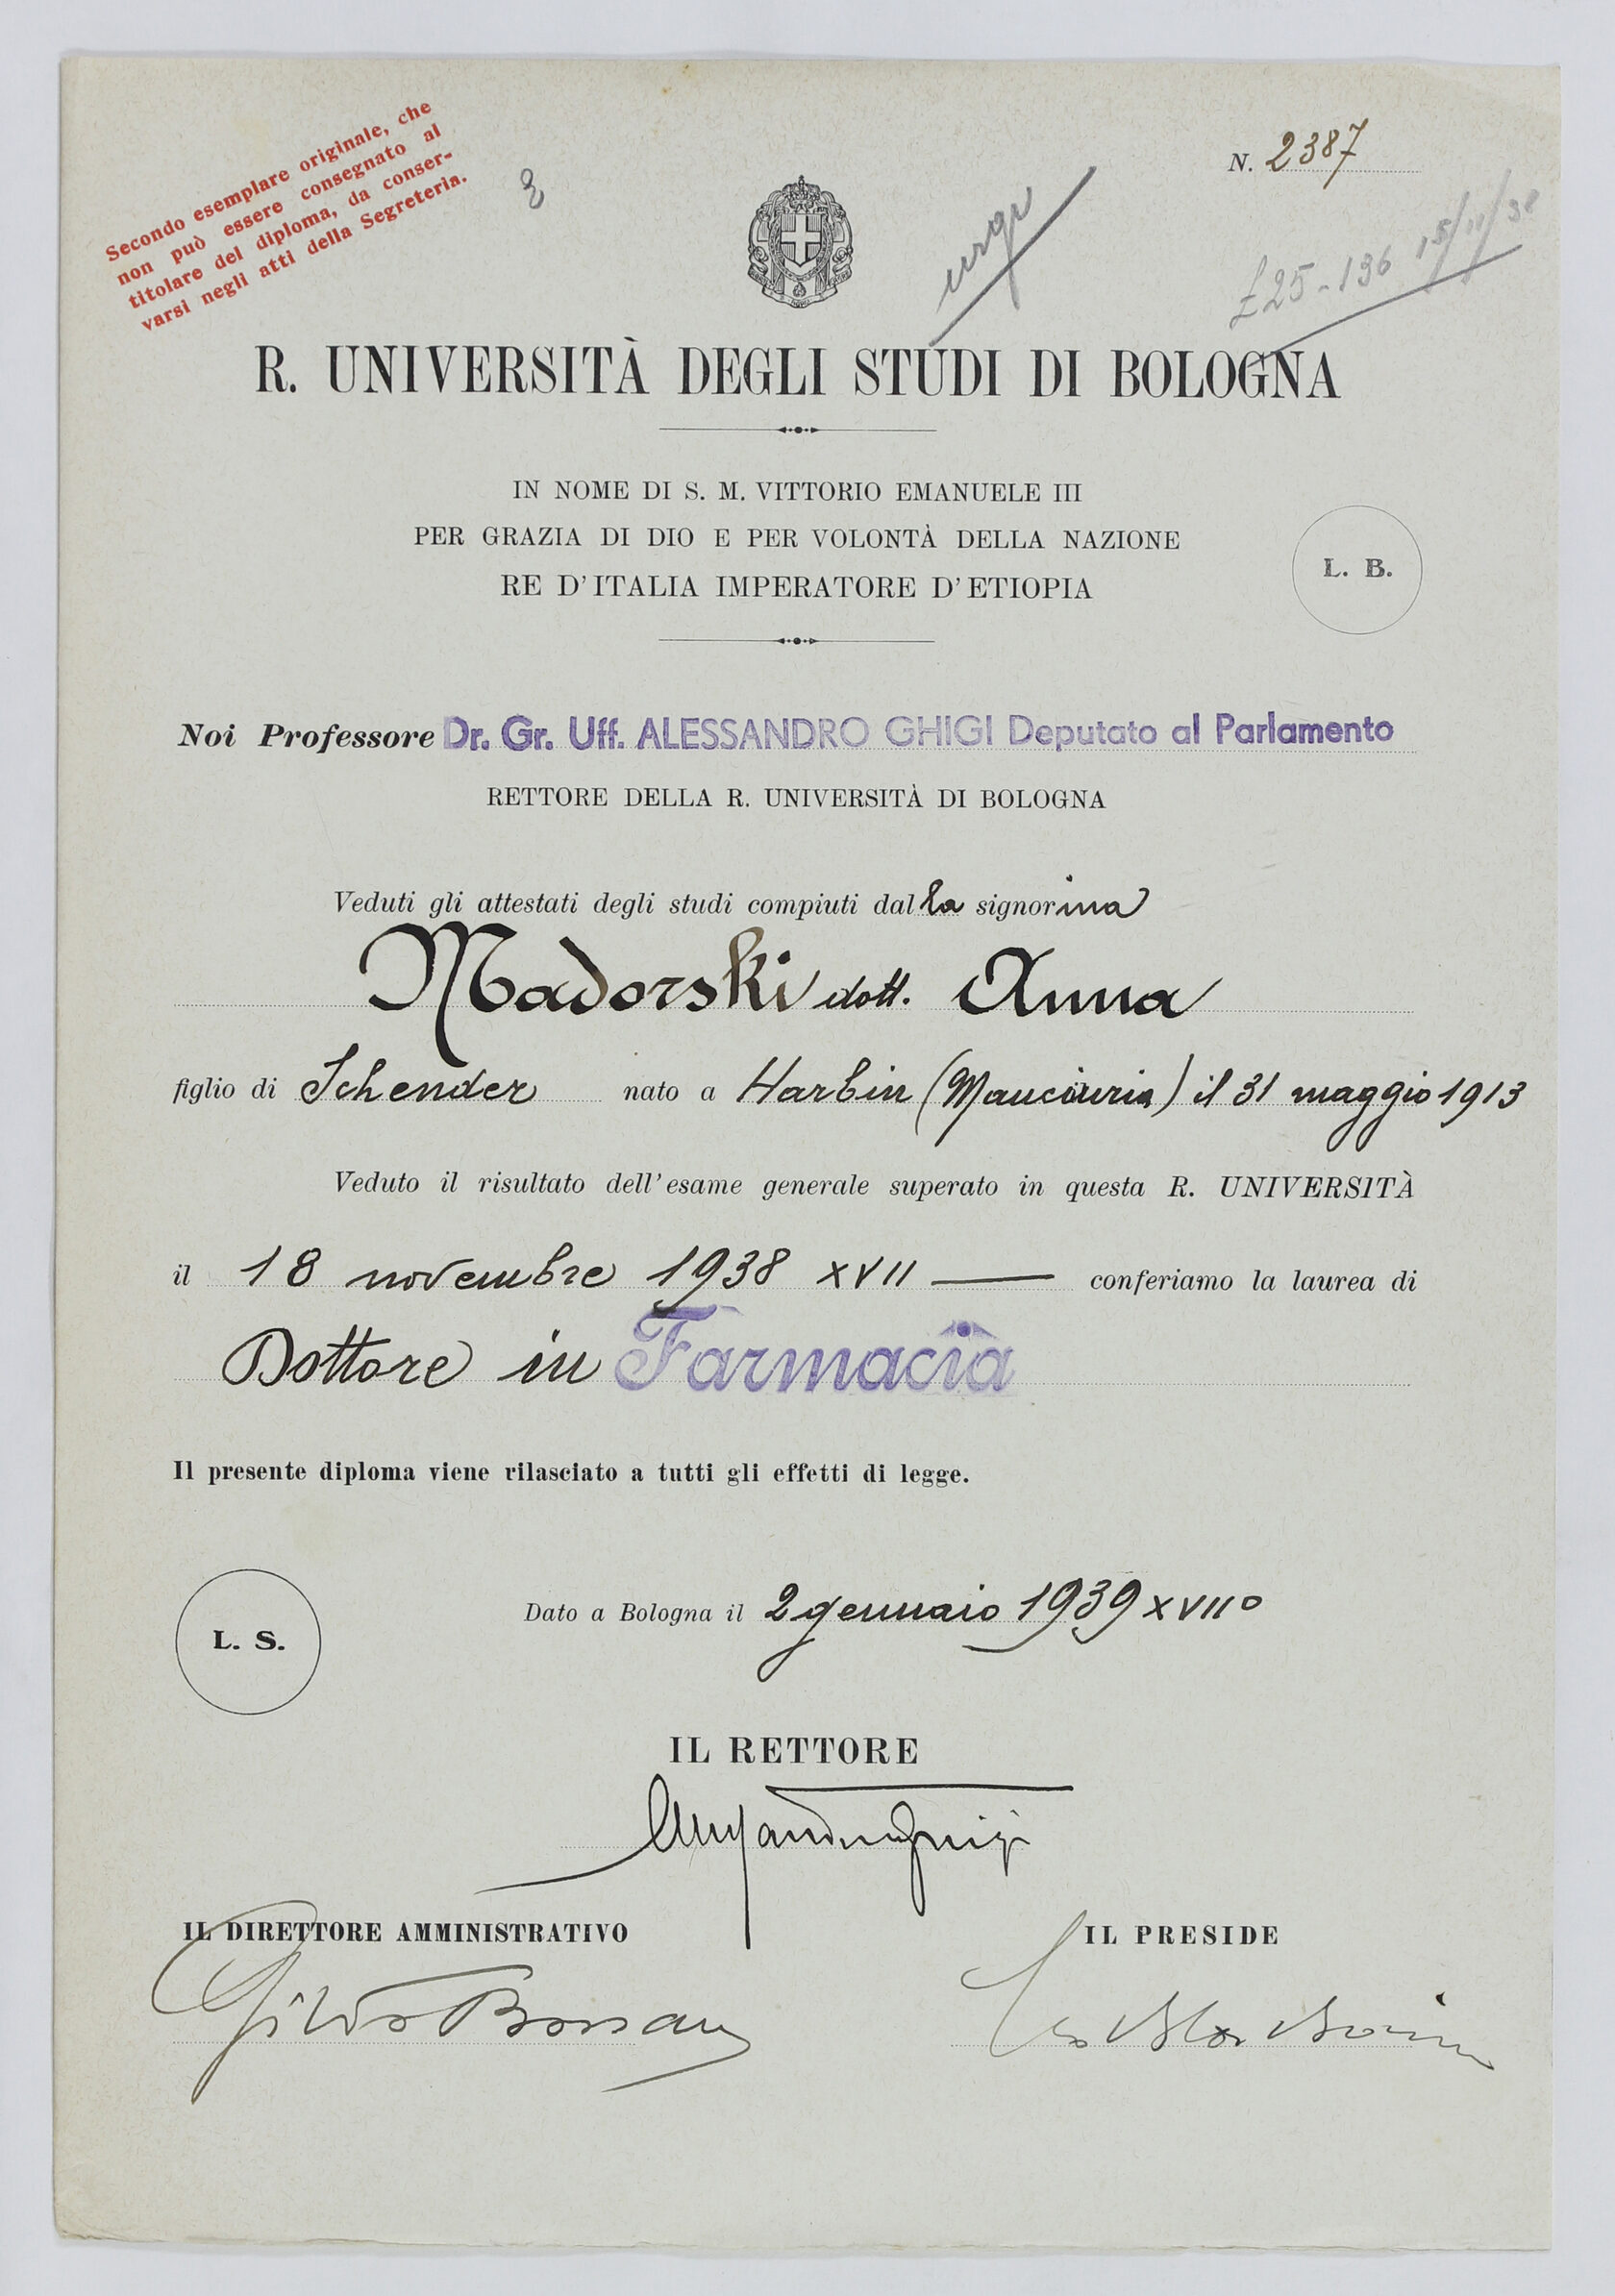 Secondo esemplare originale, che
non può essere consegnato al
titolare del diploma, da conser-
varsi negli atti della Segreteria.
N. 2387
£25-136 15/11/38
R. UNIVERSITÀ DEGLI STUDI DI BOLOGNA
IN NOME DI S. M. VITTORIO EMANUELE III
PER GRAZIA DI DIO E PER VOLONTÀ DELLA NAZIONE
RE D'ITALIA IMPERATORE D'ETIOPIA
L. B.
Noi Professore Dr. Gr. Uff. ALESSANDRO GHIGI Deputato al Parlamento
RETTORE DELLA R. UNIVERSITÀ DI BOLOGNA
Veduti gli attestati degli studi compiuti dalla signorina
Madorski dott. Anna
figlio di Schender nato a Harbin (Manciuria) il 31 maggio 1913
Veduto il risultato dell'esame generale superato in questa R. UNIVERSITÀ
il 18 novembre 1938 XVII — conferiamo la laurea di
Dottore in Farmacia
Il presente diploma viene rilasciato a tutti gli effetti di legge.
L. S.
Dato a Bologna il 2 gennaio 1939 XVIIº
IL RETTORE
IL DIRETTORE AMMINISTRATIVO
IL PRESIDE